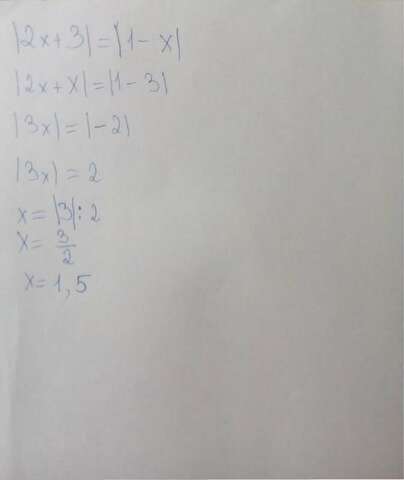 |2x+3|=|1-x|
|2x+x|=|1-3|
|3x|=|-2|
|3x|=2
x=|3|:2
x=3/2
x=1,5